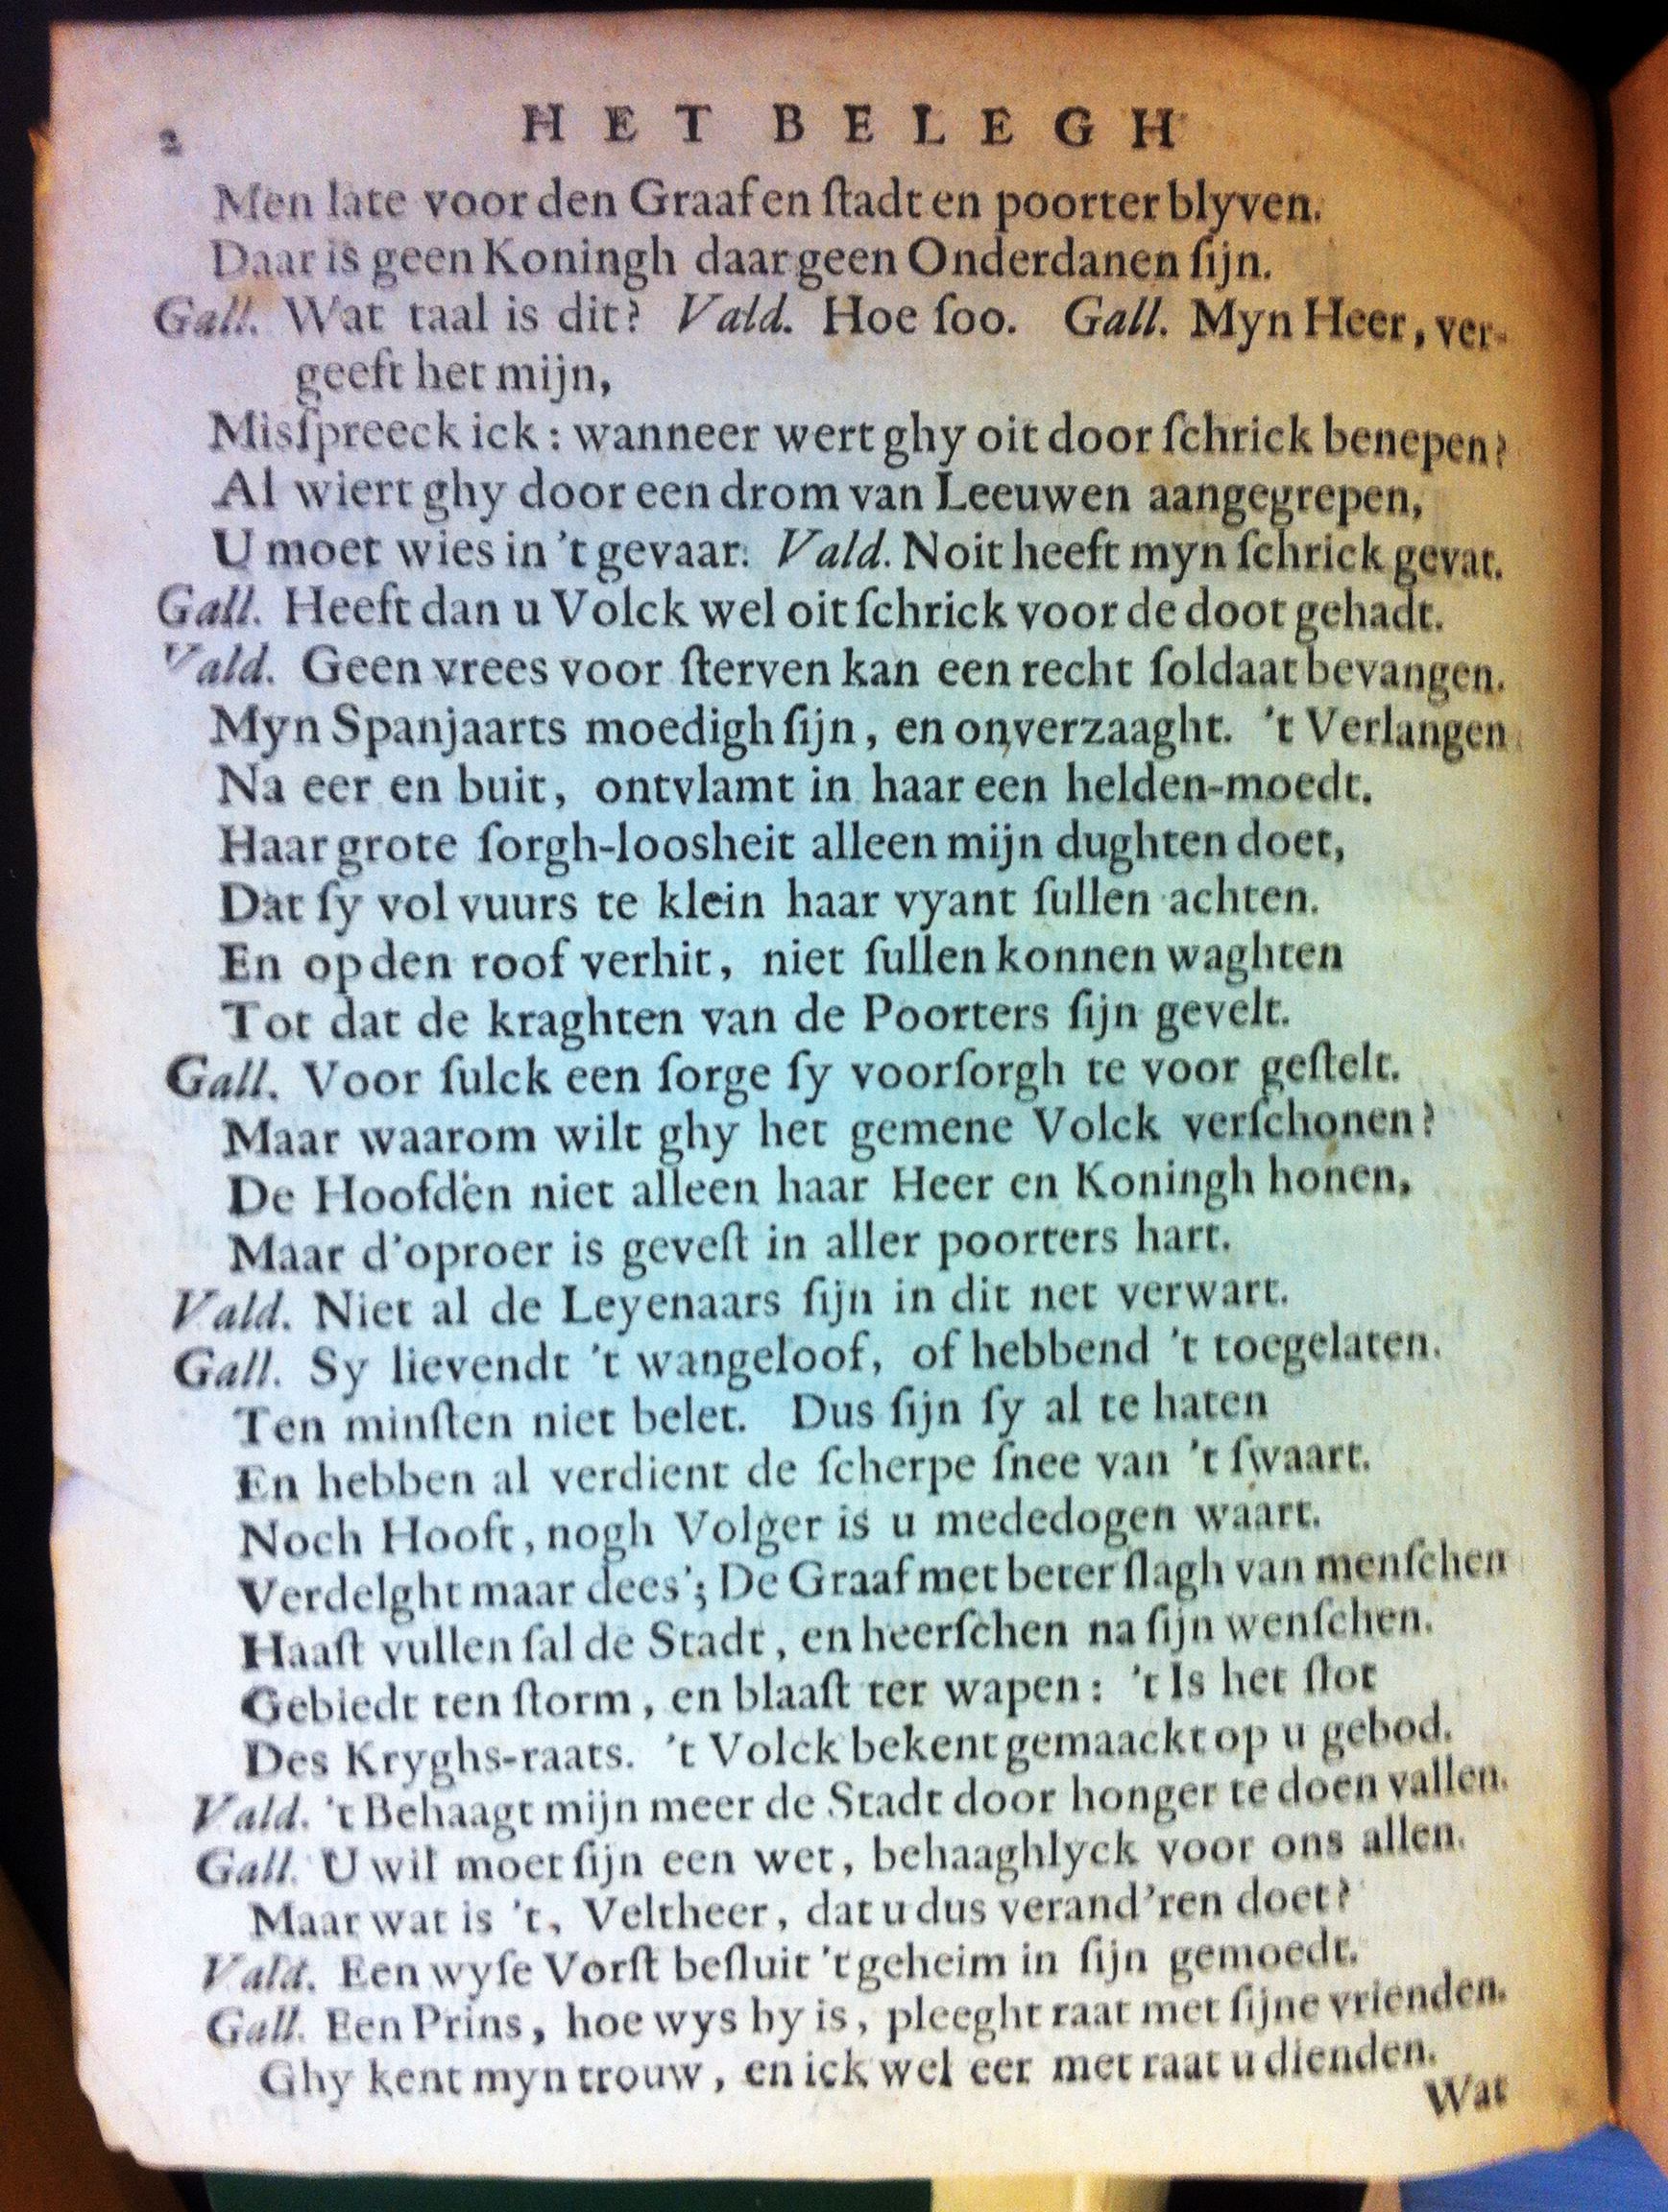 2 HET BELEGH
Men late voor den Graaf en ſtadt en poorter blyven.
Daar is geen Koningh daar geen Onderdanen ſijn.
Gall. Wat taal is dit? Vald. Hoe ſoo. Gall. Myn Heer, ver-
geeft het mijn,
Misſpreeck ick: wanneer wert ghy oit door ſchrick benepen?
Al wiert ghy door een drom van Leeuwen aangegrepen,
U moet wies in 't gevaar. Vald. Noit heeft myn ſchrick gevat.
Gall. Heeft dan u Volck wel oit ſchrick voor de doot gehadt.
Vald. Geen vrees voor ſterven kan een recht ſoldaat bevangen.
Myn Spanjaarts moedigh ſijn, en onverzaaght. 't Verlangen
Na eer en buit, ontvlamt in haar een helden-moedt.
Haar grote ſorgh-loosheit alleen mijn dughten doet,
Dat ſy vol vuurs te klein haar vyant ſullen achten.
En op den roof verhit, niet ſullen konnen waghten
Tot dat de kraghten van de Poorters ſijn gevelt.
Gall. Voor ſulck een ſorge ſy voorſorgh te voor geſtelt.
Maar waarom wilt ghy het gemene Volck verſchonen?
De Hoofden niet alleen haar Heer en Koningh honen,
Maar d'oproer is geveſt in aller poorters hart.
Vald. Niet al de Leyenaars ſijn in dit net verwart.
Gall. Sy lievendt 't wangeloof, of hebbend 't toegelaten.
Ten minſten niet belet. Dus ſijn ſy al te haten
En hebben al verdient de ſcherpe ſnee van 't ſwaart.
Noch Hooft, nogh Volger is u mededogen waart.
Verdelght maar dees'; De Graaf met beter ſlagh van menſchen
Haaſt vullen ſal de Stadt, en heerſchen na ſijn wenſchen.
Gebiedt ten ſtorm, en blaaſt ter wapen: 't Is het ſlot
Des Kryghs-raats. 't Volck bekent gemaackt op u gebod.
Vald. 't Behaagt mijn meer de Stadt door honger te doen vallen.
Gall. U wil moet ſijn een wet, behaaghlyck voor ons allen.
Maar wat is 't, Veltheer, dat u dus verand'ren doet?
Vald. Een wyſe Vorſt beſluit 't geheim in ſijn gemoedt.
Gall. Een Prins, hoe wys hy is, pleeght raat met ſijne vrienden.
Ghy kent myn trouw, en ick wel eer met raat u dienden.
Wat